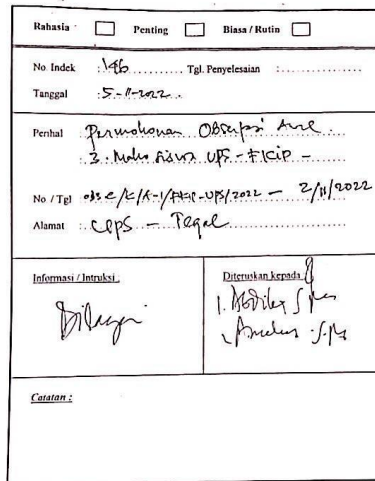 Rahasia Penting Biasa / Rutin
No. Indek : 146 Tgl. Penyelesaian :
Tanggal : 5-11-2022
Perihal Permohonan Observasi
: 3. Mahasiswa UPS - FKIP -
No / Tgl /K/A-1/FKIP-UPS/2022 - 2/11/2022
Alamat : UPS - Tegal
Informasi / Intruksi :
Diteruskan kepada
1. S.pd
Catatan :